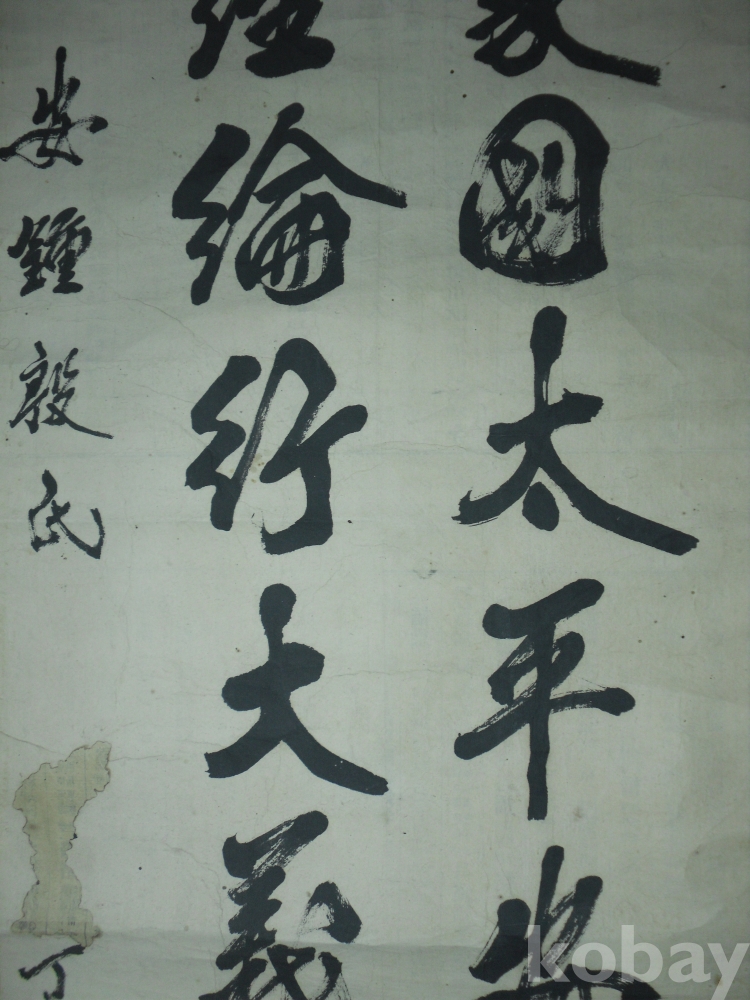 家國太平安
經綸行大義
安鍾殷氏
丁
kobay